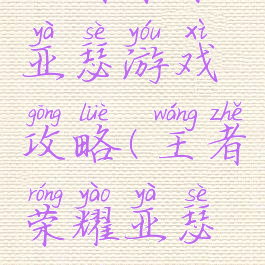 yà sè yóu xì
亚瑟游戏
gōng lüè wáng zhě
攻略(王者
róng yào yà sè
荣耀亚瑟